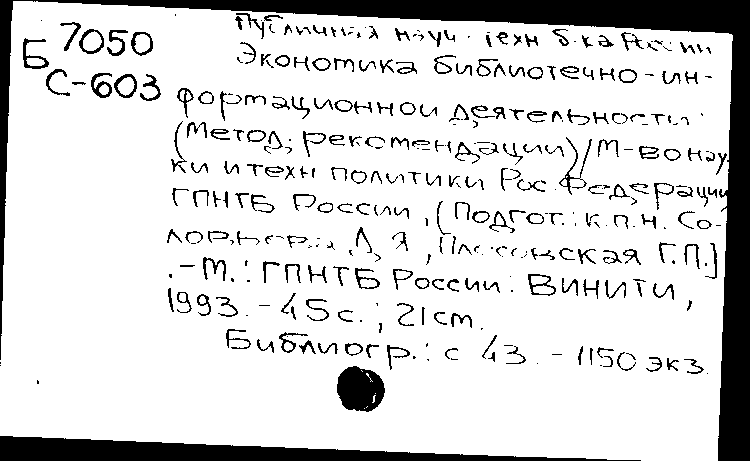 Публичная науч. техн б-ка России
Б 7050
С-603
Экономика библиотечно-ин-
формационной деятельности:
(Метод, рекомендации)/М-во нау-
ки и техн политики Рос. Федерации
ГПНТБ России, (Подгот.: к.п.н. Со-
Д Я, Г.П.]
.-М.: ГПНТБ России: ВИНИТИ,
1993.-45с.; 21см.
Библиогр.: с 43.-1150 экз.